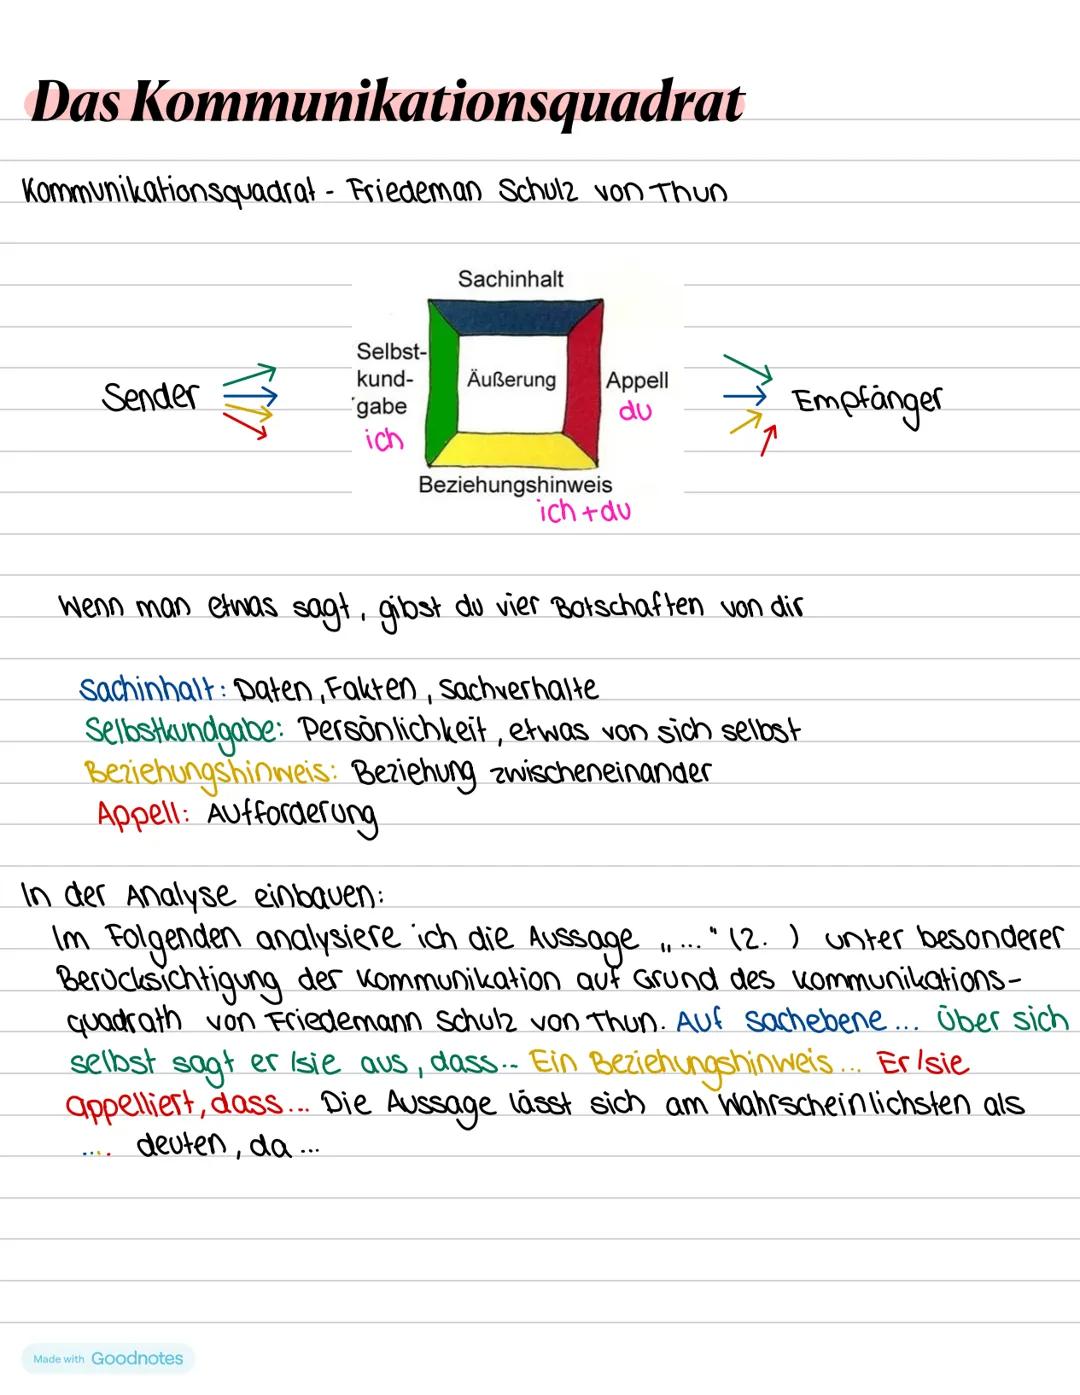 Das Kommunikationsquadrat
Kommunikationsquadrat - Friedeman Schulz von Thun
Sachinhalt
Selbst-
kund-
gabe
ich
Sender
Äußerung
Appell
du
Empfänger
Beziehungshinweis
ich + du
Wenn man etwas sagt, gibst du vier Botschaften von dir
Sachinhalt: Daten, Fakten, Sachverhalte
Selbstkundgabe: Persönlichkeit, etwas von sich selbst
Beziehungshinweis: Beziehung zwischeneinander
Appell: Aufforderung
In der Analyse einbauen:
Im Folgenden analysiere ich die Aussage „..." (Z. ) unter besonderer
Berücksichtigung der Kommunikation auf Grund des Kommunikations-
quadrath von Friedemann Schulz von Thun. Auf Sachebene... Über sich
selbst sagt er/sie aus, dass... Ein Beziehungshinweis... Er/sie
appelliert, dass... Die Aussage lässt sich am Wahrscheinlichsten als
.... deuten, da...
Made with Goodnotes